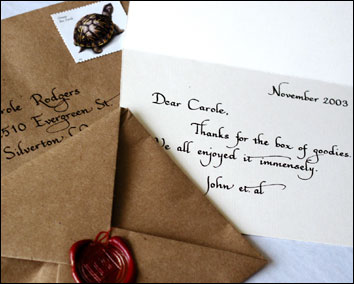 Carole Rodgers
2510 Evergreen St
Silverton CO
November 2003
Dear Carole,
Thanks for the box of goodies.
We all enjoyed it immensely.
John et.al